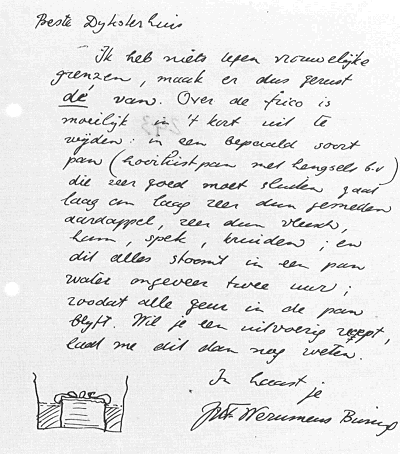 Beste Dyksterhuis
Ik heb niets tegen vrouwelijke
grenzen, maak er dus gerust
dé van. Over de frico is
moeilijk in 't kort uit te
wijden: in een bepaald soort
pan (hooikistpan met hengsels b.v)
die zeer goed moet sluiten gaat
laag om laag zeer dun gesneden
aardappel, zeer dun vleesch,
ham, spek, kruiden; en
dit alles stoomt in een pan
water ongeveer twee uur;
zoodat alle geur in de pan
blyft. Wil je een uitvoerig recept,
laat me dit dan nog weten.
In haast je
Werumeus Buning